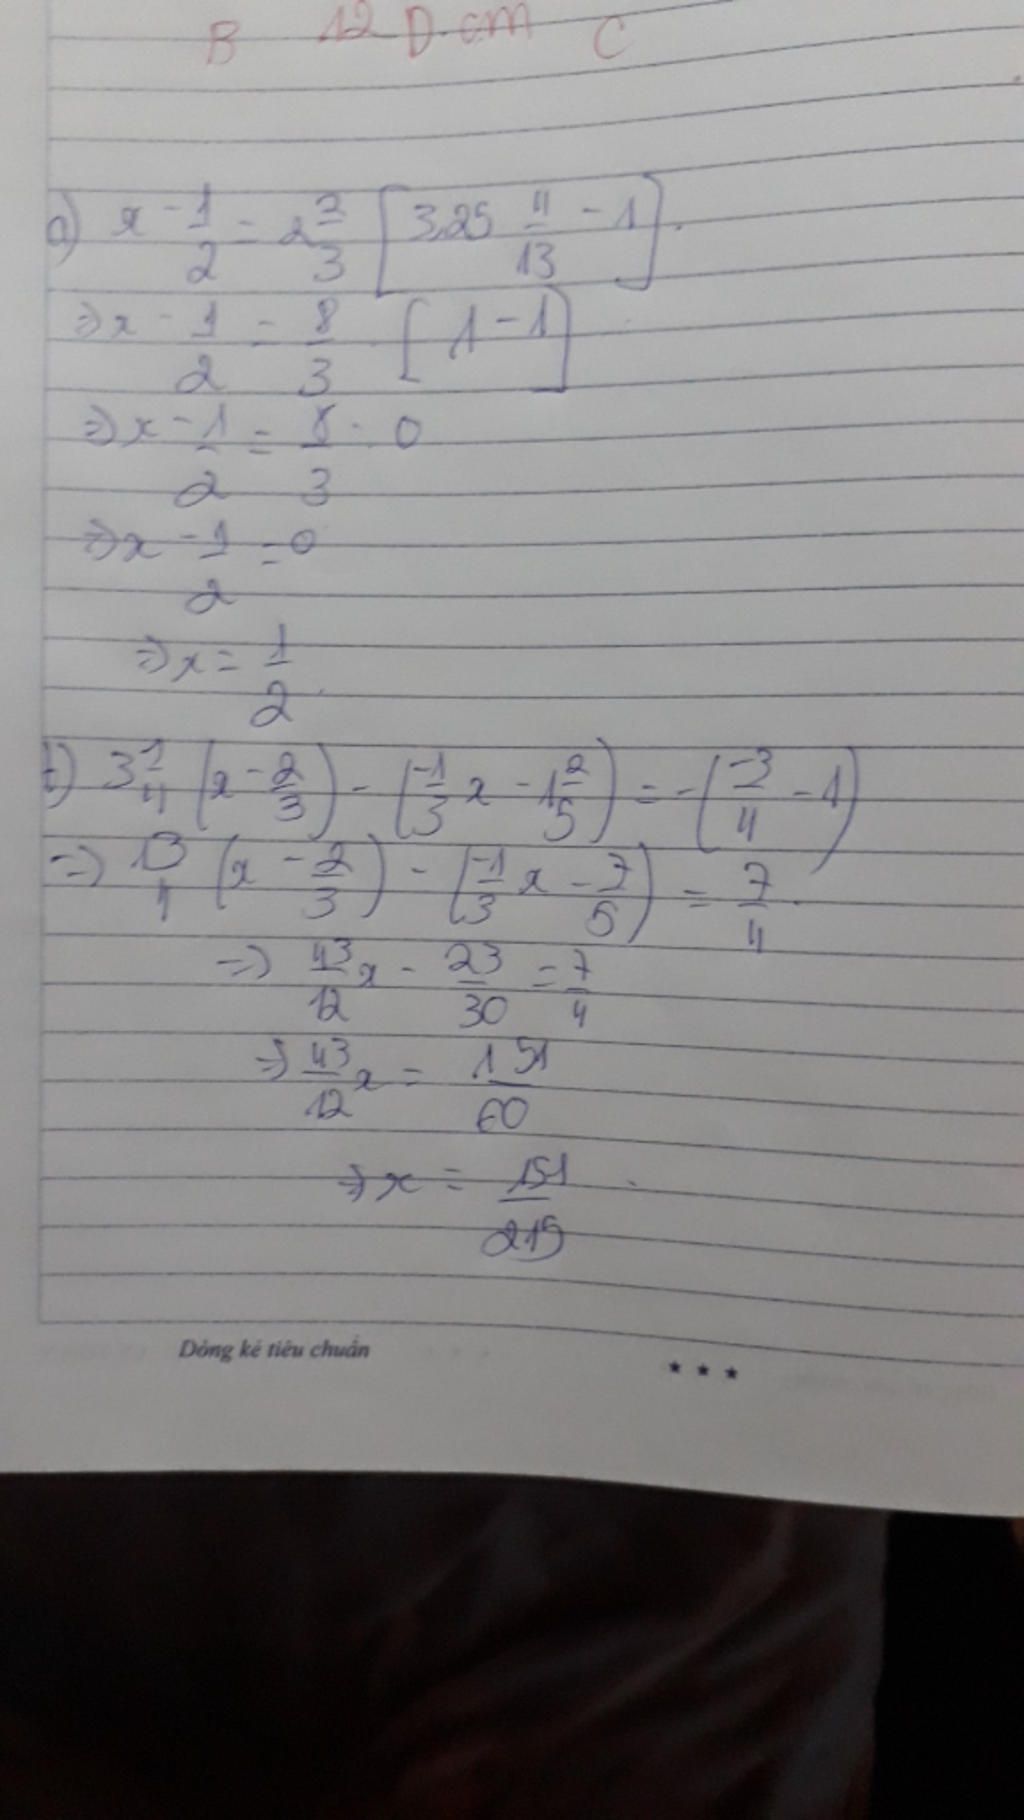 B 12 D cm C
a) x - 1/2 = 2 2/3 [3,25 4/13 - 1].
=> x - 1/2 = 8/3 [1 - 1]
=> x - 1/2 = 8/3 . 0
=> x - 1/2 = 0
=> x = 1/2
3 1/4 (x - 2/3) - (-1/3 x - 1 2/5) = -(-3/4 - 1)
=> 13/4 (x - 2/3) - (-1/3 x - 7/5) = 7/4
=> 43/12 x - 23/30 = 7/4
=> 43/12 x = 151/60
=> x = 151/215
Dòng kẻ tiêu chuẩn
★ ★ ★